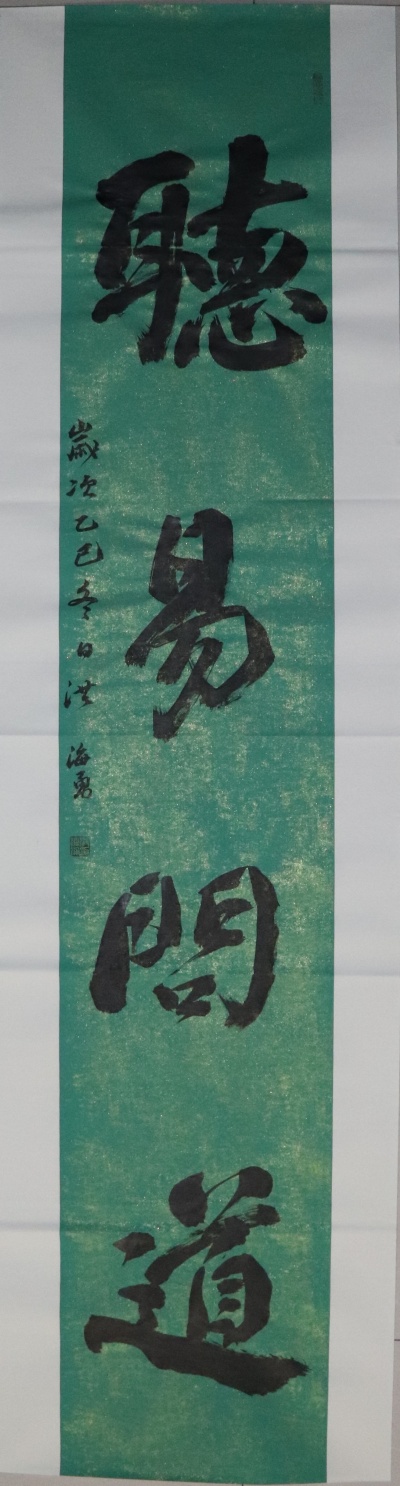 聽易問道
歲次乙巳冬日洪海勇